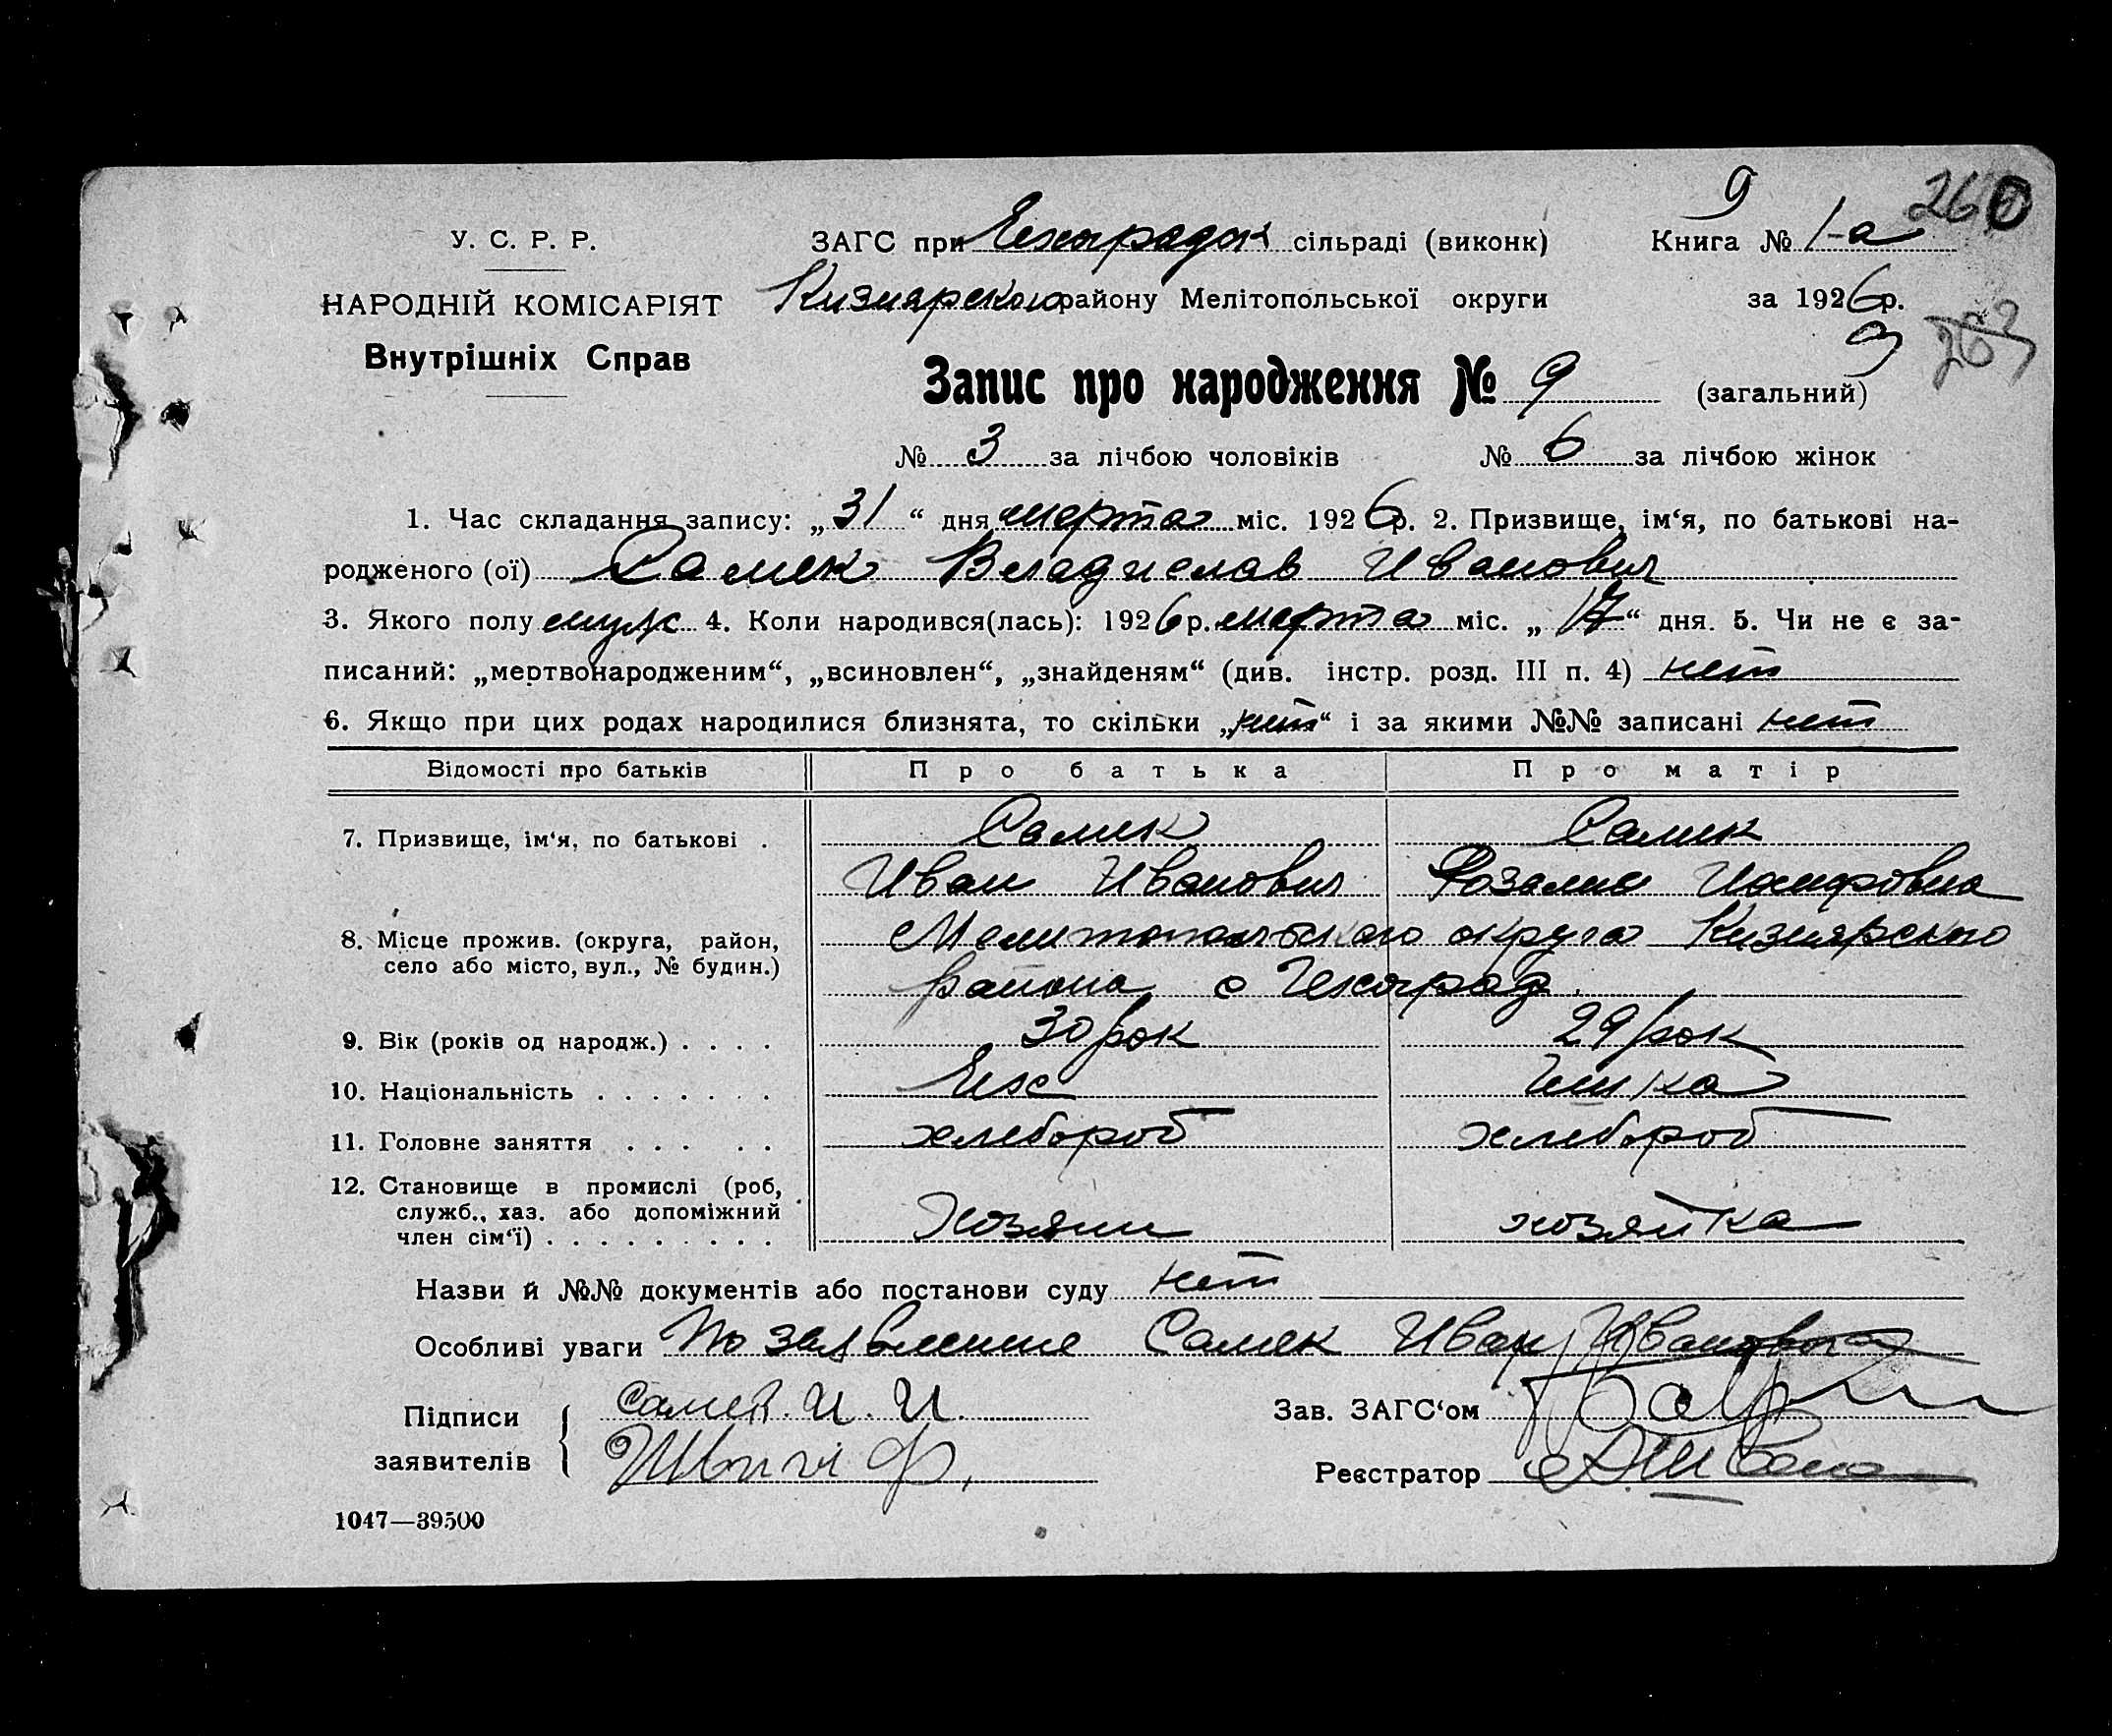 9 260
У. С. Р. Р. ЗАГС при Чехоградск сільраді (виконк) Книга № 1-а
НАРОДНІЙ КОМІСАРІЯТ Кизиярского району Мелітопольської округи за 1926 р.
Внутрішніх Справ
Запис про народження № 9 (загальний)
№ 3 за лічбою чоловіків № 6 за лічбою жінок
1. Час складання запису: „31“ дня марта міс. 1926 р. 2. Призвище, ім‘я, по батькові на-
родженого (ої) Самек Владислав Иванович
3. Якого полу муж 4. Коли народився(лась): 1926 р. марта міс. „17“ дня. 5. Чи не є за-
писаний: „мертвонародженим“, „всиновлен“, „знайденям“ (див. інстр. розд. III п. 4) нет
6. Якщо при цих родах народилися близнята, то скільки „нет“ і за якими №№ записані нет
Відомості про батьків Про батька Про матір
7. Призвище, ім‘я, по батькові . Самек Самек
Иван Иванович Розалия Иосифовна
8. Місце прожив. (округа, район, Мелитопольского округа Кизиярского
село або місто, вул., № будин.) района с Чехоград.
9. Вік (років од народж.) . . . . 30 рок 29 рок
10. Національність . . . . . . . Чех Чешка
11. Головне заняття . . . . . хлебороб хлебороб
12. Становище в промислі (роб,
служб., хаз. або допоміжний
член сім‘ї) . . . . . . . . . Хозяин хозяйка
Назви й №№ документів або постанови суду нет
Особливі уваги По заявлению Самек Иван Ивановича
Підписи Самек. И. И. Зав. ЗАГС‘ом
заявителів Реєстратор
1047—39500